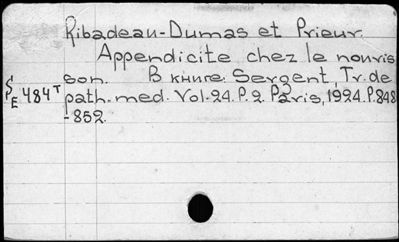 Ribadeau-Dumas et Prieur.
Appendicite chez le nouris
son. В книге: Sergent, Tr. de
path. med. Vol. 24. P. 2. Paris, 1924. P. 848
- 852.
S E 484 T